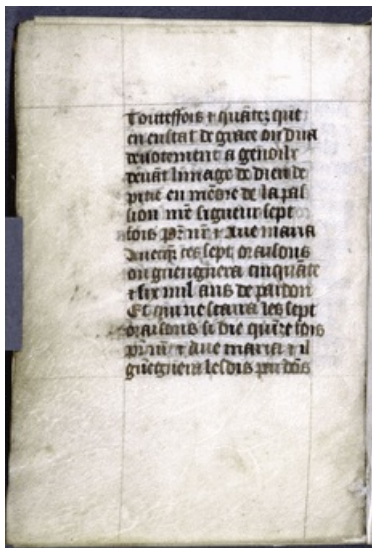 Toutteffois & quātez quil
en eustat de grace on dira
deuotement a genoilz
deuāt limage de dieu de
pitie en mēore de la pas
sion nr̄e signeur sept
fois pr̄ nr̄ & Aue maria
Auecq̄ ces sept oraisons
on guengnera cinquāte
& six mil ans de pardon
Et qui ne scaura les sept
oraisons si die quīze fois
pr̄ nr̄ & aue maria & il
guēgnera lesdis pardōs